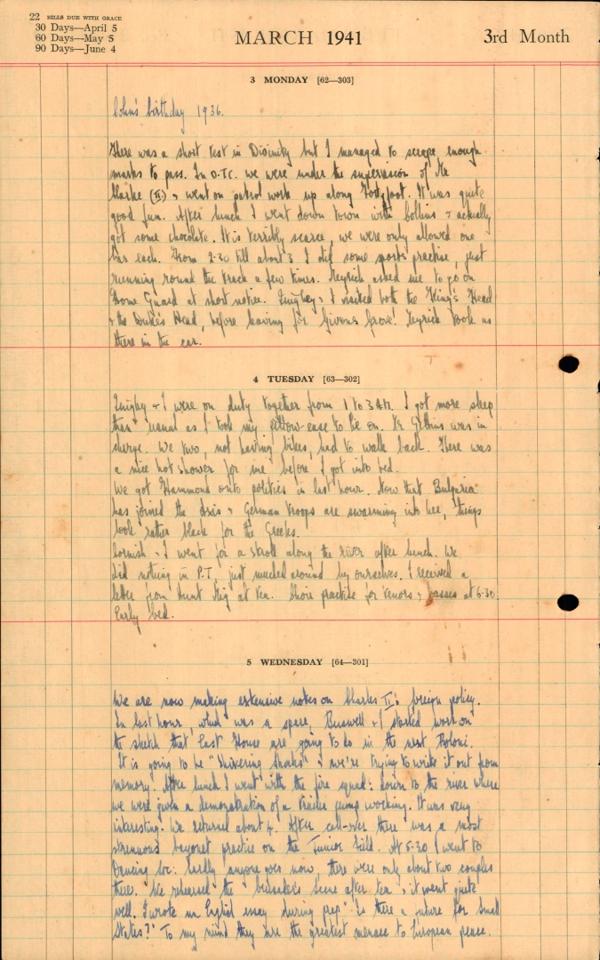 22 BILLS DUE WITH GRACE
30 Days—April 5
60 Days—May 5
90 Days—June 4
MARCH 1941
3rd Month
3 MONDAY [62—303]
John's birthday 1936.
There was a short test in Divinity but I managed to scrape enough
marks to pass. In O.T.C. we were under the supervision of Mr
Clarke (II) & went on patrol work up along . It was quite
good fun. After lunch I went down town with Collins & actually
got some chocolate. It is terribly scarce, we were only allowed one
bar each. From 2.30 till about 3 I did some sports practise, just
running round the track a few times. asked me to go on
Home Guard at short notice. Quigley & I visited both the King's Head
& the Duke's Head, before leaving for Givons Grove! took us
there in the car.
4 TUESDAY [63—302]
Quigley & I were on duty together from 1 to 3 A.M. I got more sleep
than usual as I took my pillow-case to lie on. Mr was in
charge. We two, not having bikes, had to walk back. There was
a nice hot shower for me before I got into bed.
We got Hammond onto politics in last hour. Now that Bulgaria
has joined the Axis & German troops are swarming into her, things
look rather black for the Greeks.
Cornish & I went for a stroll along the river after lunch. We
did nothing in P.T. just mucked around by ourselves. I received a
letter from Aunt at tea. Choir practise for tenors & basses at 6.30.
Early bed.
5 WEDNESDAY [64—301]
We are now making extensive notes on Charles II's foreign policy.
In last hour, which was a spare, Buswell & I started work on
the sketch that East House are going to do in the next .
It is going to be "Shivering Shocks" & we're trying to write it out from
memory. After lunch I went with the fire squad down to the river where
we were given a demonstration of a trailer pump working. It was very
interesting. We returned about 4. After call-over there was a most
strenuous bayonet practise on the Junior field. At 5.30 I went to
Dancing . Hardly anyone goes now, there were only about two couples
there. We rehearsed the " scene after tea & it went quite
well. I wrote an English essay during prep "Is there a future for Small
States?" To my mind they are the greatest menace to European peace.